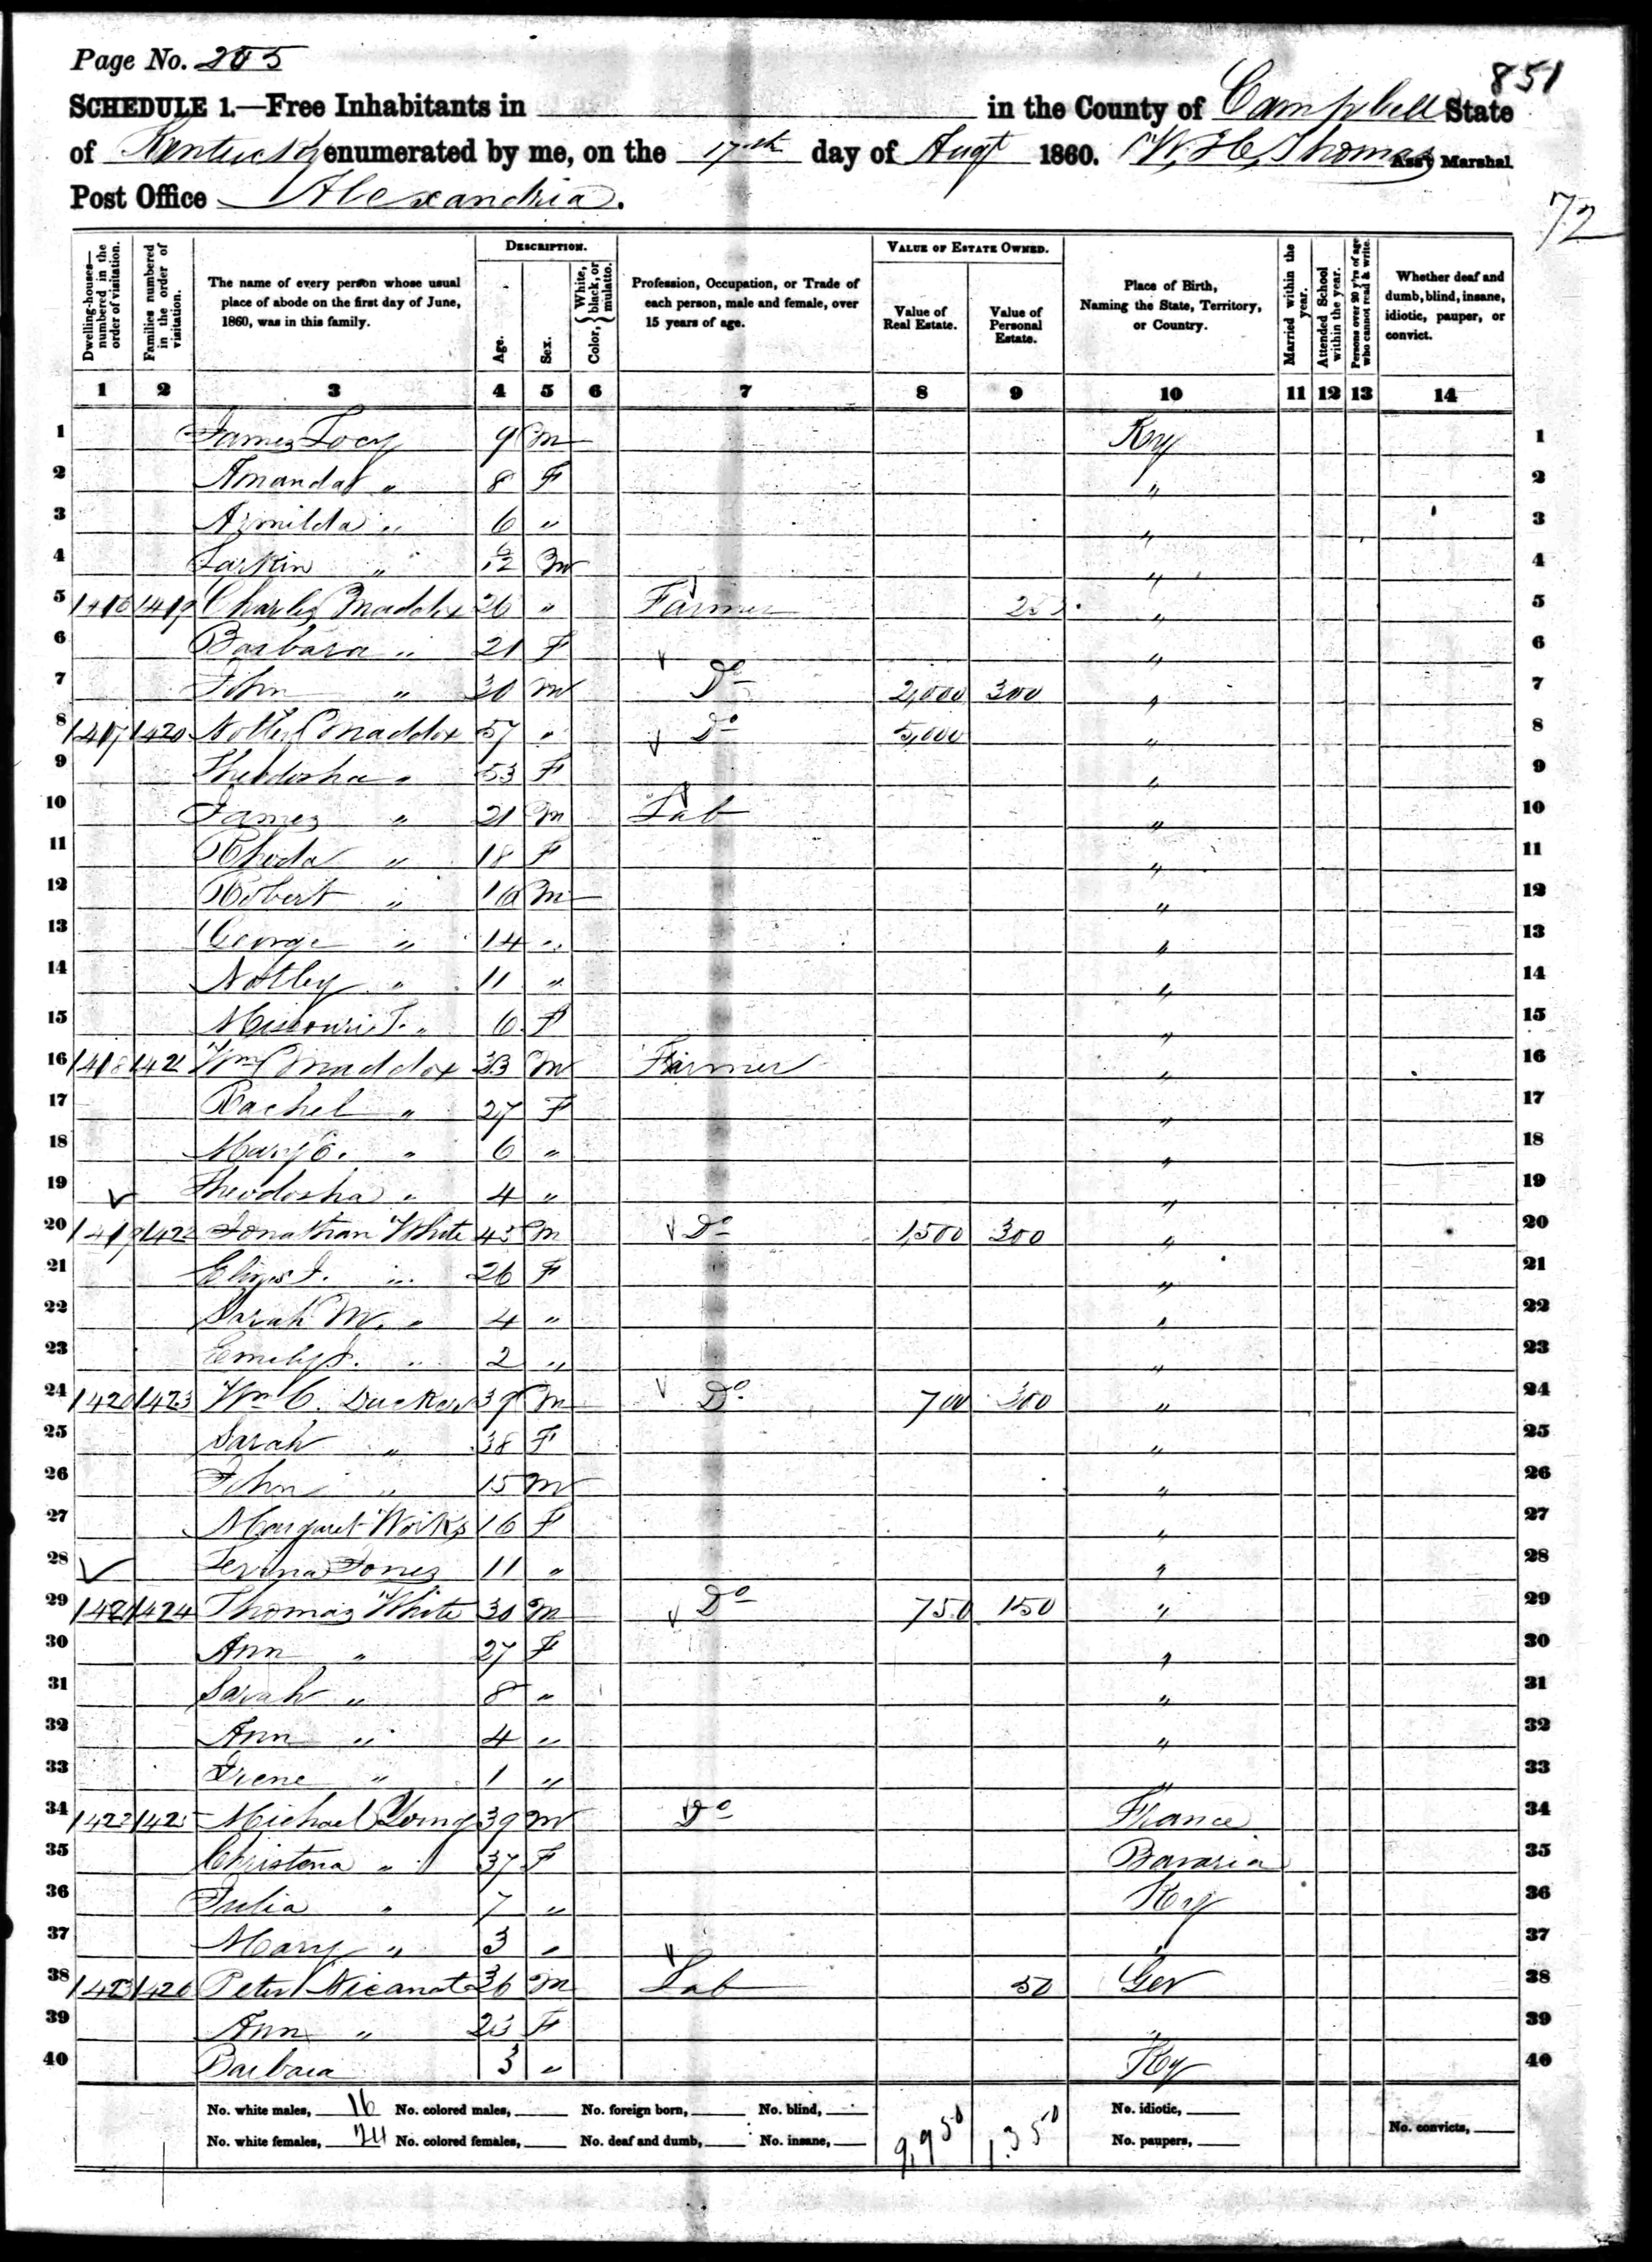 Page No. 205
851
SCHEDULE 1.—Free Inhabitants in in the County of Campbell State
of Kentucky enumerated by me, on the 17th day of Augt 1860. W. H. C. Thomas Ass't Marshal
Post Office Alexandria.
72
Dwelling-houses—numbered in the order of visitation. Families numbered in the order of visitation. The name of every person whose usual place of abode on the first day of June, 1860, was in this family. DESCRIPTION. Age. Sex. Color, {White, black, or mulatto. Profession, Occupation, or Trade of each person, male and female, over 15 years of age. VALUE OF ESTATE OWNED. Value of Real Estate. Value of Personal Estate. Place of Birth, Naming the State, Territory, or Country. Married within the year. Attended School within the year. Persons over 20 y'rs of age who cannot read & write. Whether deaf and dumb, blind, insane, idiotic, pauper, or convict.
1 2 3 4 5 6 7 8 9 10 11 12 13 14
1 James 9 m Ky 1
2 Amanda " 8 F " 2
3 Armilda " 6 " " 3
4 Larkin " m " 4
5 1416 1419 Charles Maddox 26 " Farmer " 5
6 Barbara " 21 F " 6
7 John " 30 m Do 2,000 300 " 7
8 1417 1420 Notley Maddox 57 " Do 5,000 " 8
9 Theodosha " 53 F " 9
10 James " 21 m Lab " 10
11 Rhoda " 18 F " 11
12 Robert " 16 m " 12
13 George " 14 " " 13
14 Notley " 11 " " 14
15 Missouri T. " 6 F " 15
16 1418 1421 Wm Maddox 33 m Farmer " 16
17 Rachel " 27 F " 17
18 Mary E. " 6 " " 18
19 Theodosha " 4 " " 19
20 1419 1422 Jonathan White 45 m Do 1,500 300 " 20
21 Eliza J. " 26 F " 21
22 Sarah M. " 4 " " 22
23 Emily J. " 2 " " 23
24 1420 1423 Wm C. Ducker 39 m Do 700 300 " 24
25 Sarah " 38 F " 25
26 John " 15 m " 26
27 Margaret 16 F " 27
28 Jones 11 " " 28
29 1421 1424 Thomas White 30 m Do 750 150 " 29
30 Ann " 27 F " 30
31 Sarah " 8 " " 31
32 Ann " 4 " " 32
33 Irene " 1 " " 33
34 1422 1425 Michael Young 39 m Do France 34
35 Christena " 37 F Bavaria 35
36 Julia " 7 " Ky 36
37 Mary " 3 " " 37
38 1423 1426 Peter 36 m Lab 50 Ger 38
39 Ann " 23 F " 39
40 Barbara 3 " Ky 40
No. white males, 16 No. colored males, No. foreign born, No. blind, No. idiotic,
No. white females, 24 No. colored females, No. deaf and dumb, No. insane, 9,950 1,350 No. paupers, No. convicts,